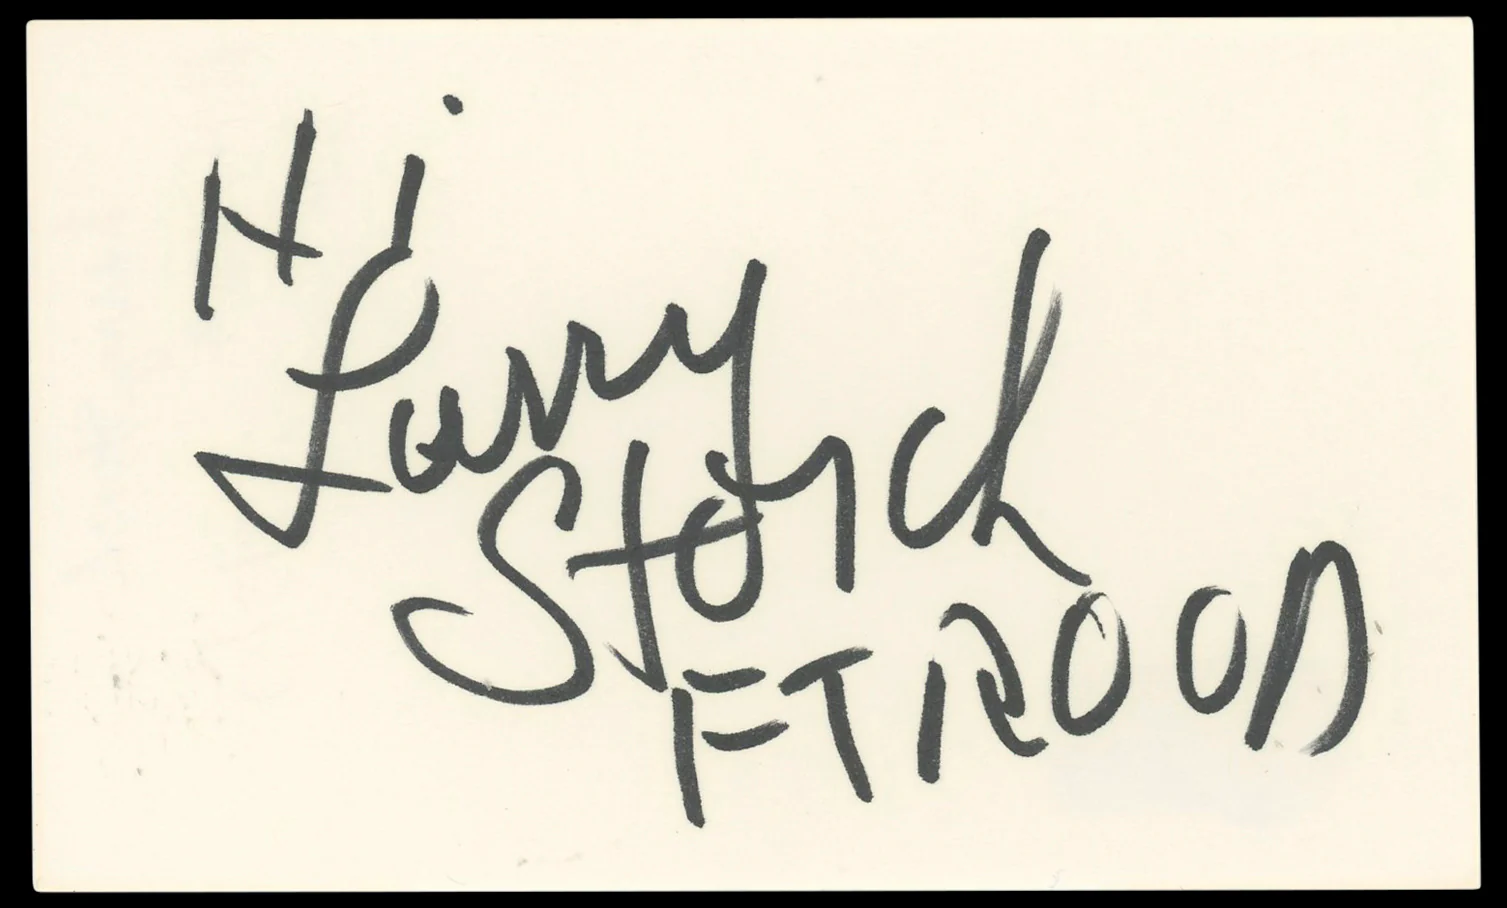 Hi
Larry
Storch
FT ROOD